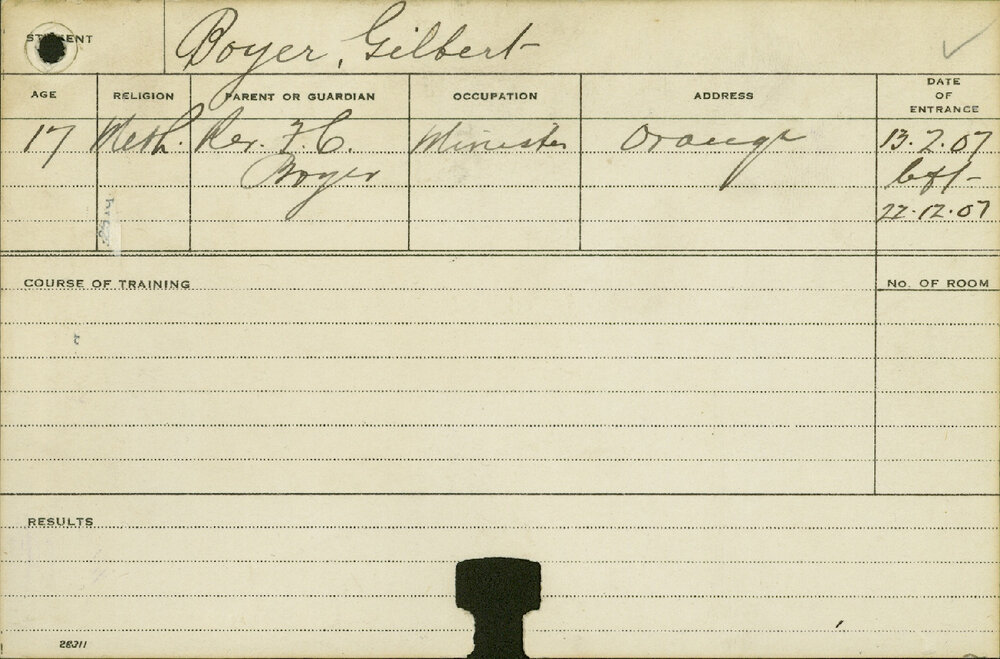 STUDENT Boyer, Gilbert
AGE RELIGION PARENT OR GUARDIAN OCCUPATION ADDRESS DATE OF ENTRANCE
17 Meth. Rev. F. C. Minister Orange 13.2.07
Boyer left
22.12.07
COURSE OF TRAINING No. OF ROOM
RESULTS
28311